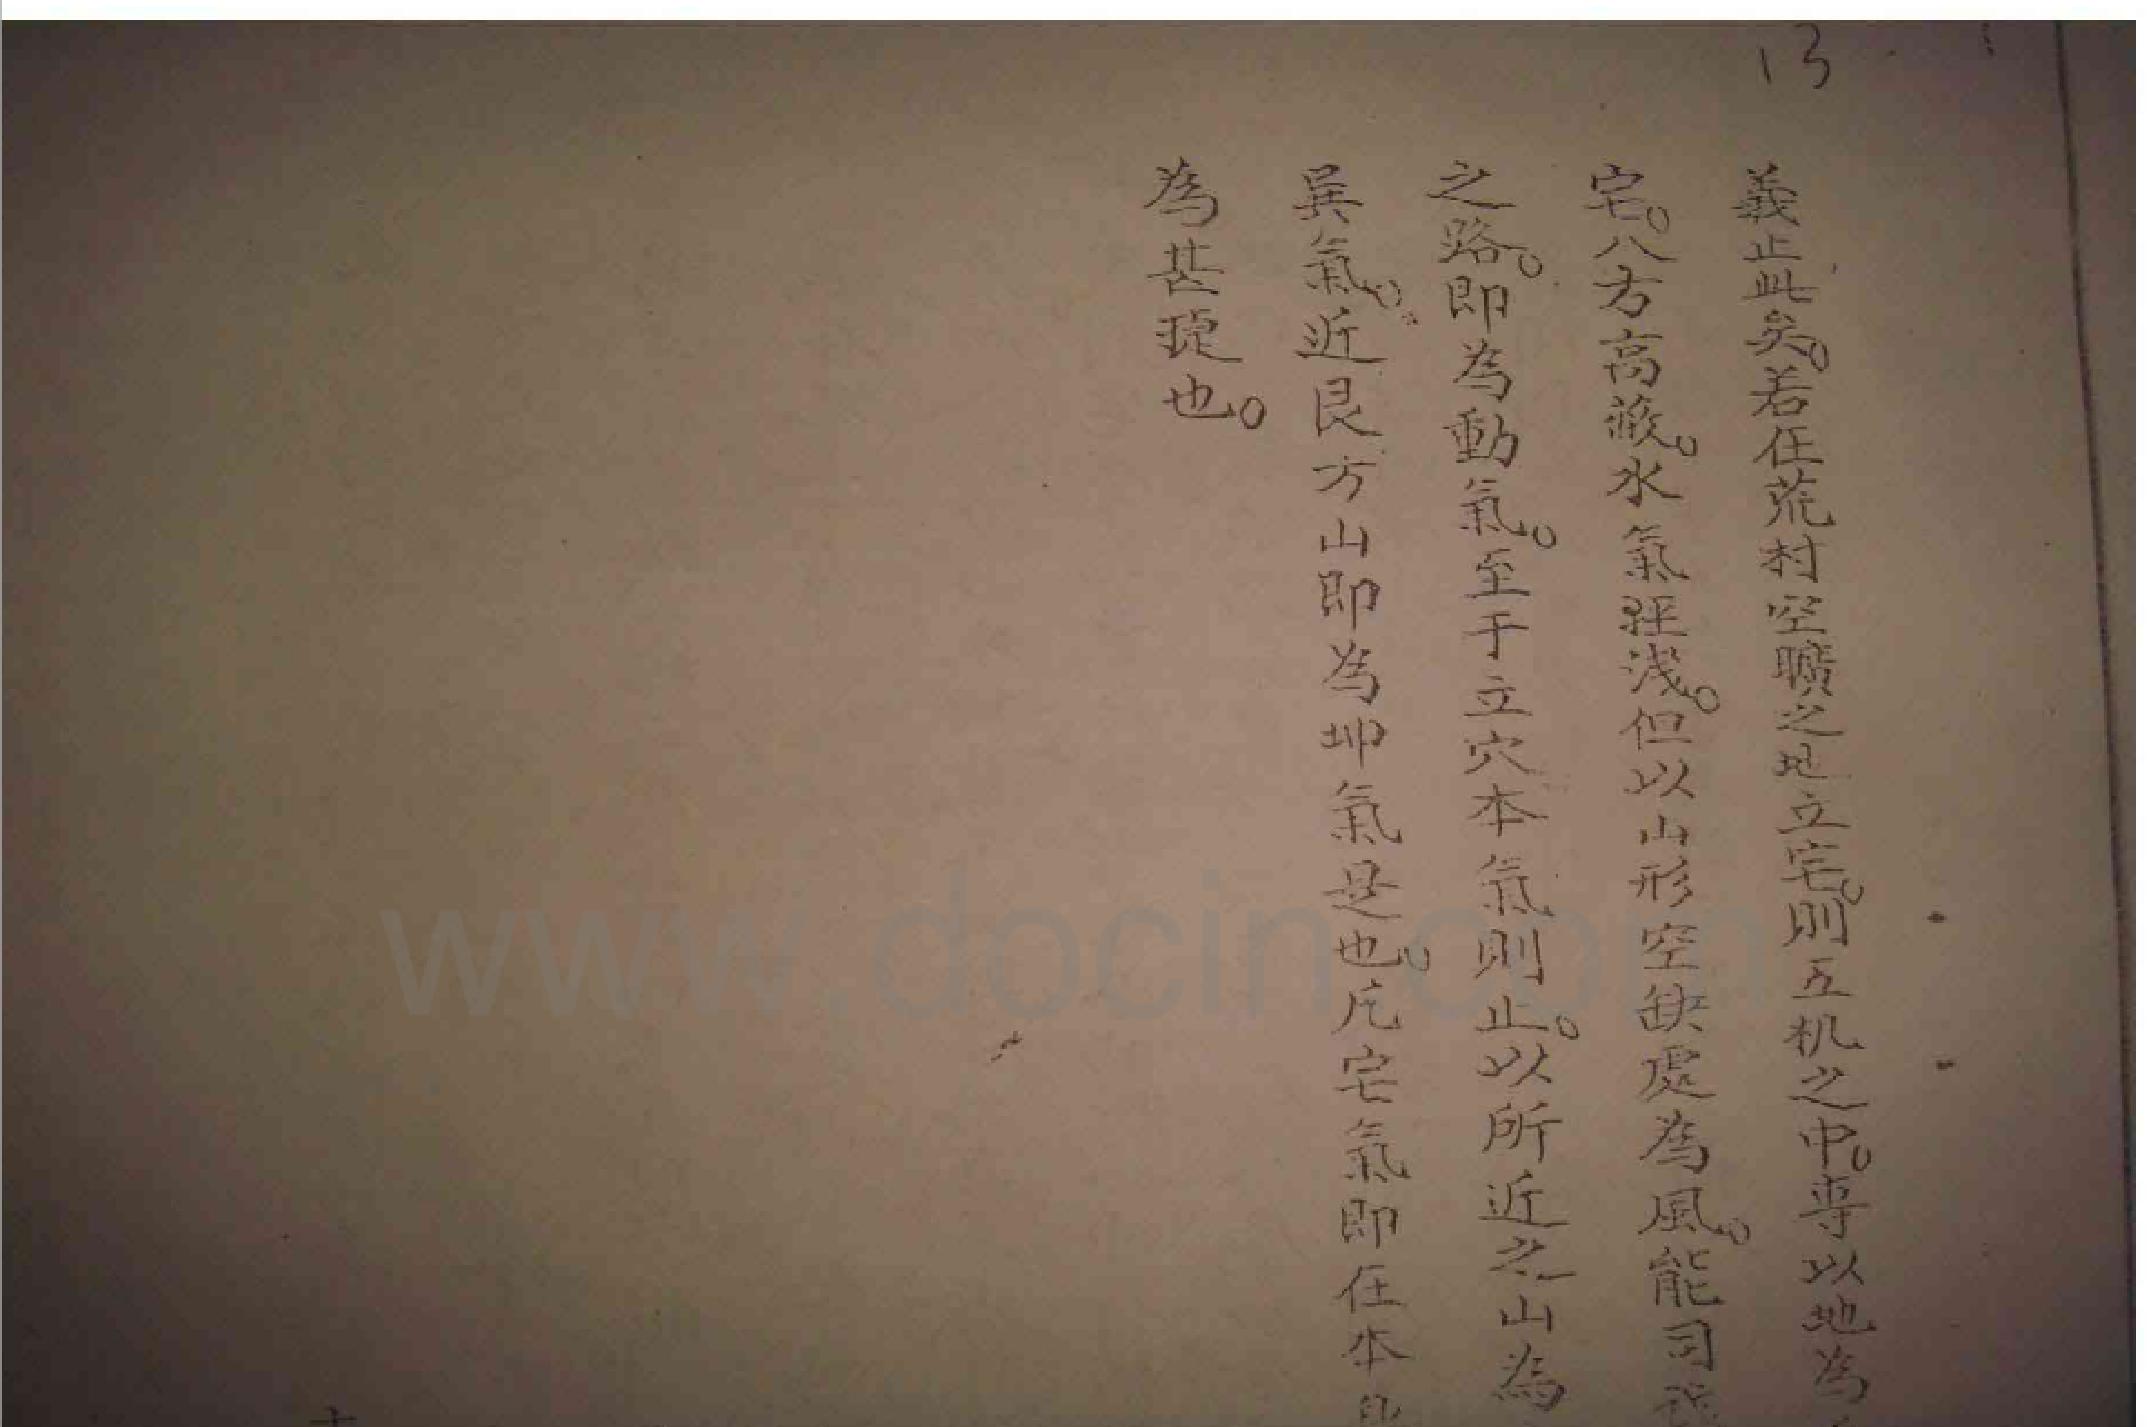 13
義止此矣。若在荒村空曠之地立宅。則五机之中。專以地為
宅。八方高蔽。水氣輕淺。但以山形空缺處為風。能司
之路。即為動氣。至于立穴本氣則止。以所近之山為
巽氣。近艮方山即為坤氣是也。凡宅氣即在本
為甚捷也。
www.docin.com